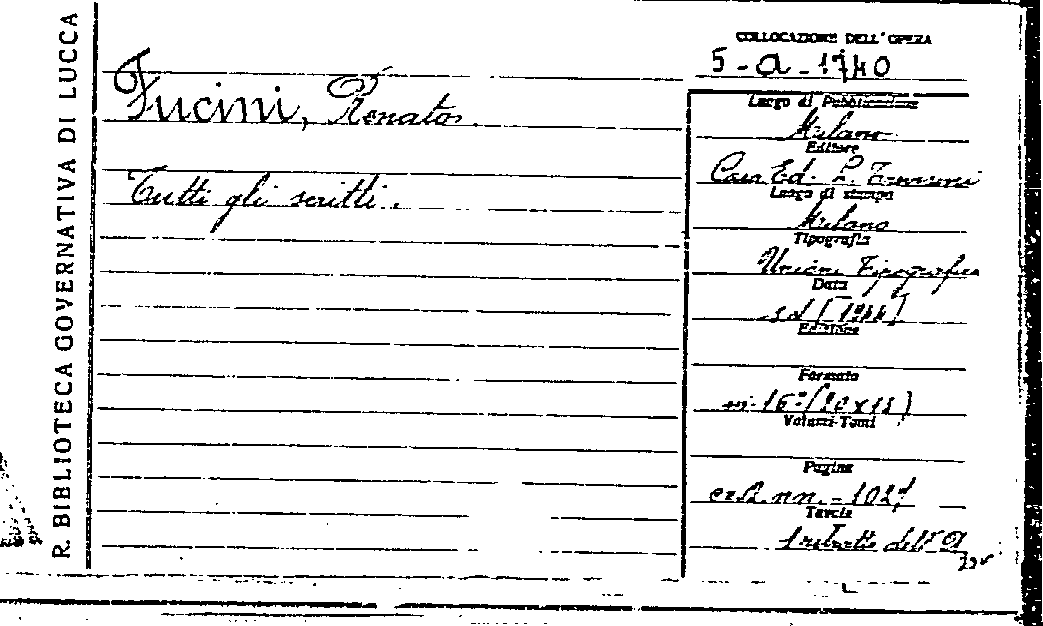 R. BIBLIOTECA GOVERNATIVA DI LUCCA
Fucini, Renato.
Tutti gli scritti.
COLLOCAZIONE DELL'OPERA
5-a-1740
Luogo di Pubblicazione
Milano
Editore
Casa Ed. L.
Luogo di stampa
Milano
Tipografia
Unione Tipografica
Data
s.d [1944]
Edizione
Formato
in-16º (20x13)
Volumi-Tomi
Pagine
nn. - 1027
Tavole
1 ritratto dell'A